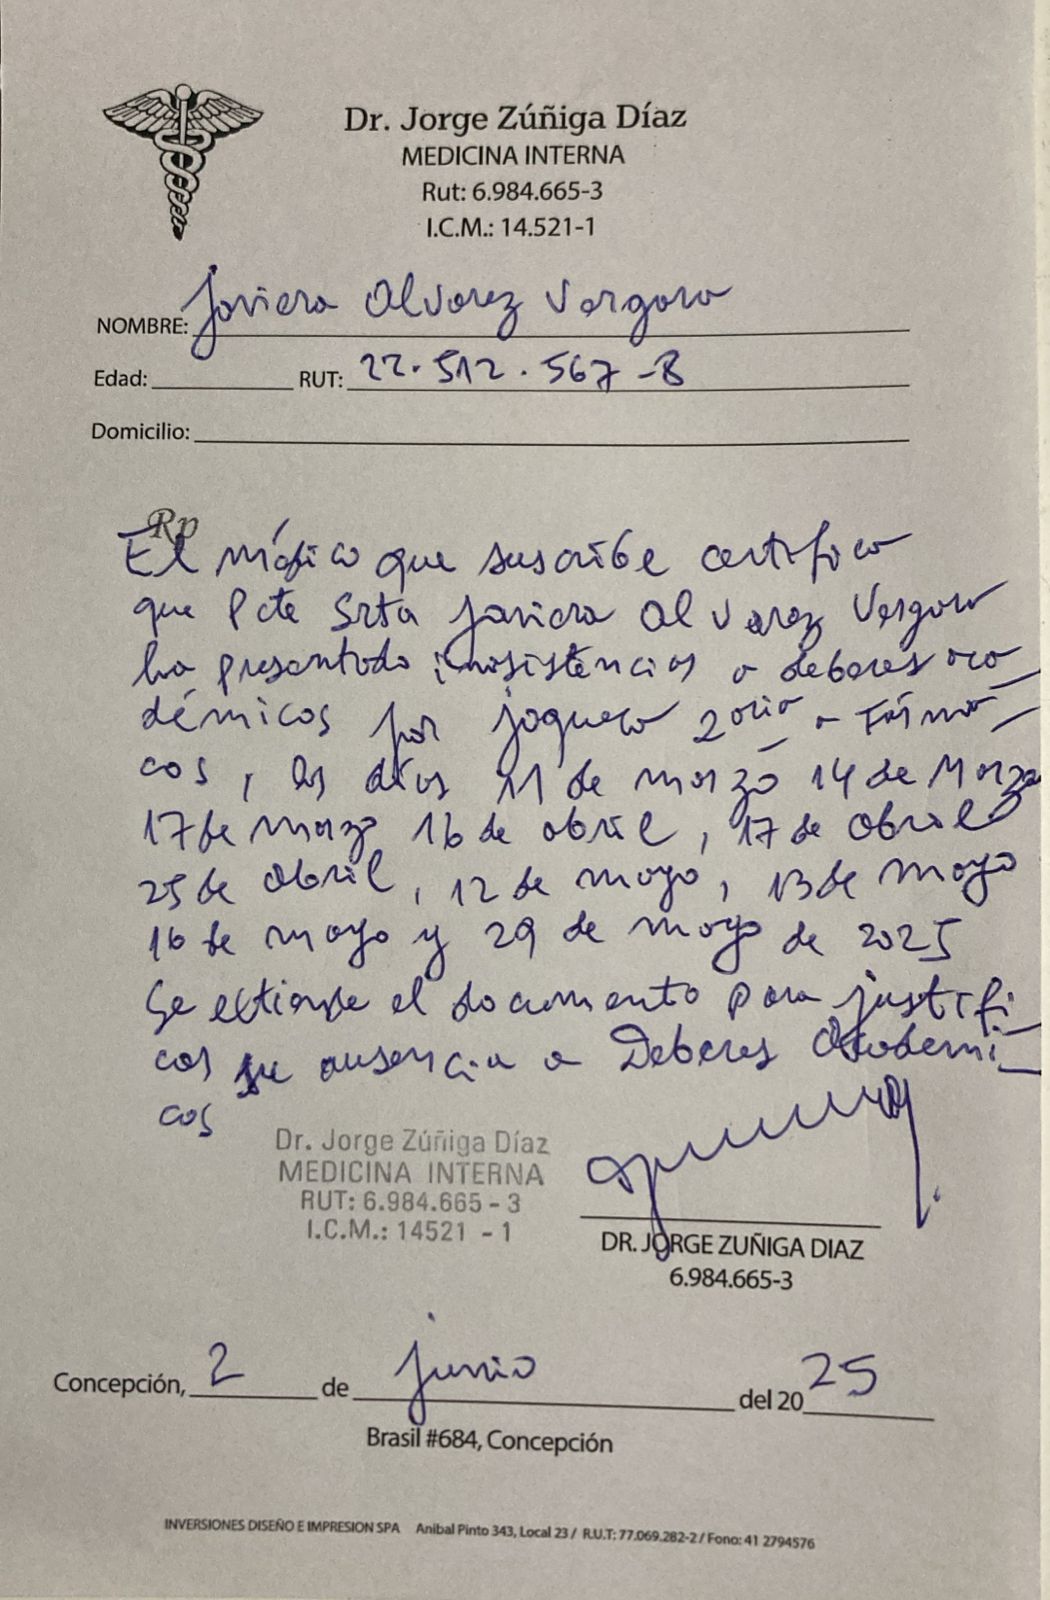 Dr. Jorge Zúñiga Díaz
MEDICINA INTERNA
Rut: 6.984.665-3
I.C.M.: 14.521-1
NOMBRE: Javiera Alvarez Vergara
Edad: RUT: 22.512.567-8
Domicilio:
Rp
El médico que suscribe certifica
que Pcte Srta Javiera Alvarez Vergara
ha presentado inasistencias a deberes aca
démicos por jaqueca 2aria a Fárma
cos, los días 11 de marzo 14 de Marzo
17 de marzo 16 de abril, 17 de abril
25 de abril, 12 de mayo, 13 de mayo
16 de mayo y 29 de mayo de 2025
Se extiende el documento para justifi
car su ausencia a Deberes Academi
cos
Dr. Jorge Zúñiga Díaz
MEDICINA INTERNA
RUT: 6.984.665 - 3
I.C.M.: 14521 - 1
DR. JORGE ZUÑIGA DIAZ
6.984.665-3
Concepción, 2 de junio del 2025
Brasil #684, Concepción
INVERSIONES DISEÑO E IMPRESION SPA Anibal Pinto 343, Local 23 / R.U.T: 77.069.282-2 / Fono: 41 2794576